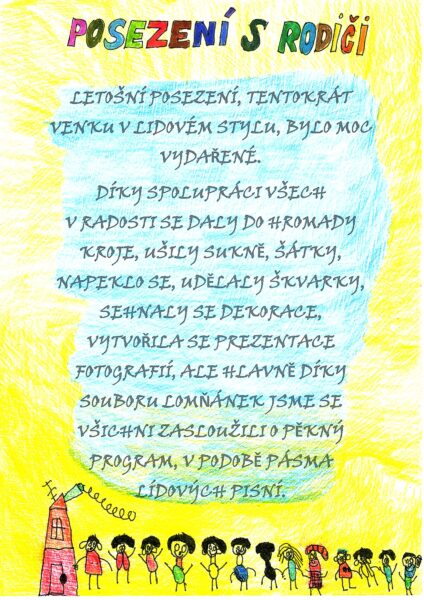 POSEZENÍ S RODIČI
LETOŠNÍ POSEZENÍ, TENTOKRÁT
VENKU V LIDOVÉM STYLU, BYLO MOC
VYDAŘENÉ.
DÍKY SPOLUPRÁCI VŠECH
V RADOSTI SE DALY DO HROMADY
KROJE, UŠILY SUKNĚ, ŠÁTKY,
NAPEKLO SE, UDĚLALY ŠKVARKY,
SEHNALY SE DEKORACE,
VYTVOŘILA SE PREZENTACE
FOTOGRAFIÍ, ALE HLAVNĚ DÍKY
SOUBORU LOMŇÁNEK JSME SE
VŠICHNI ZASLOUŽILI O PĚKNÝ
PROGRAM, V PODOBĚ PÁSMA
LÍDOVÝCH PISNÍ.